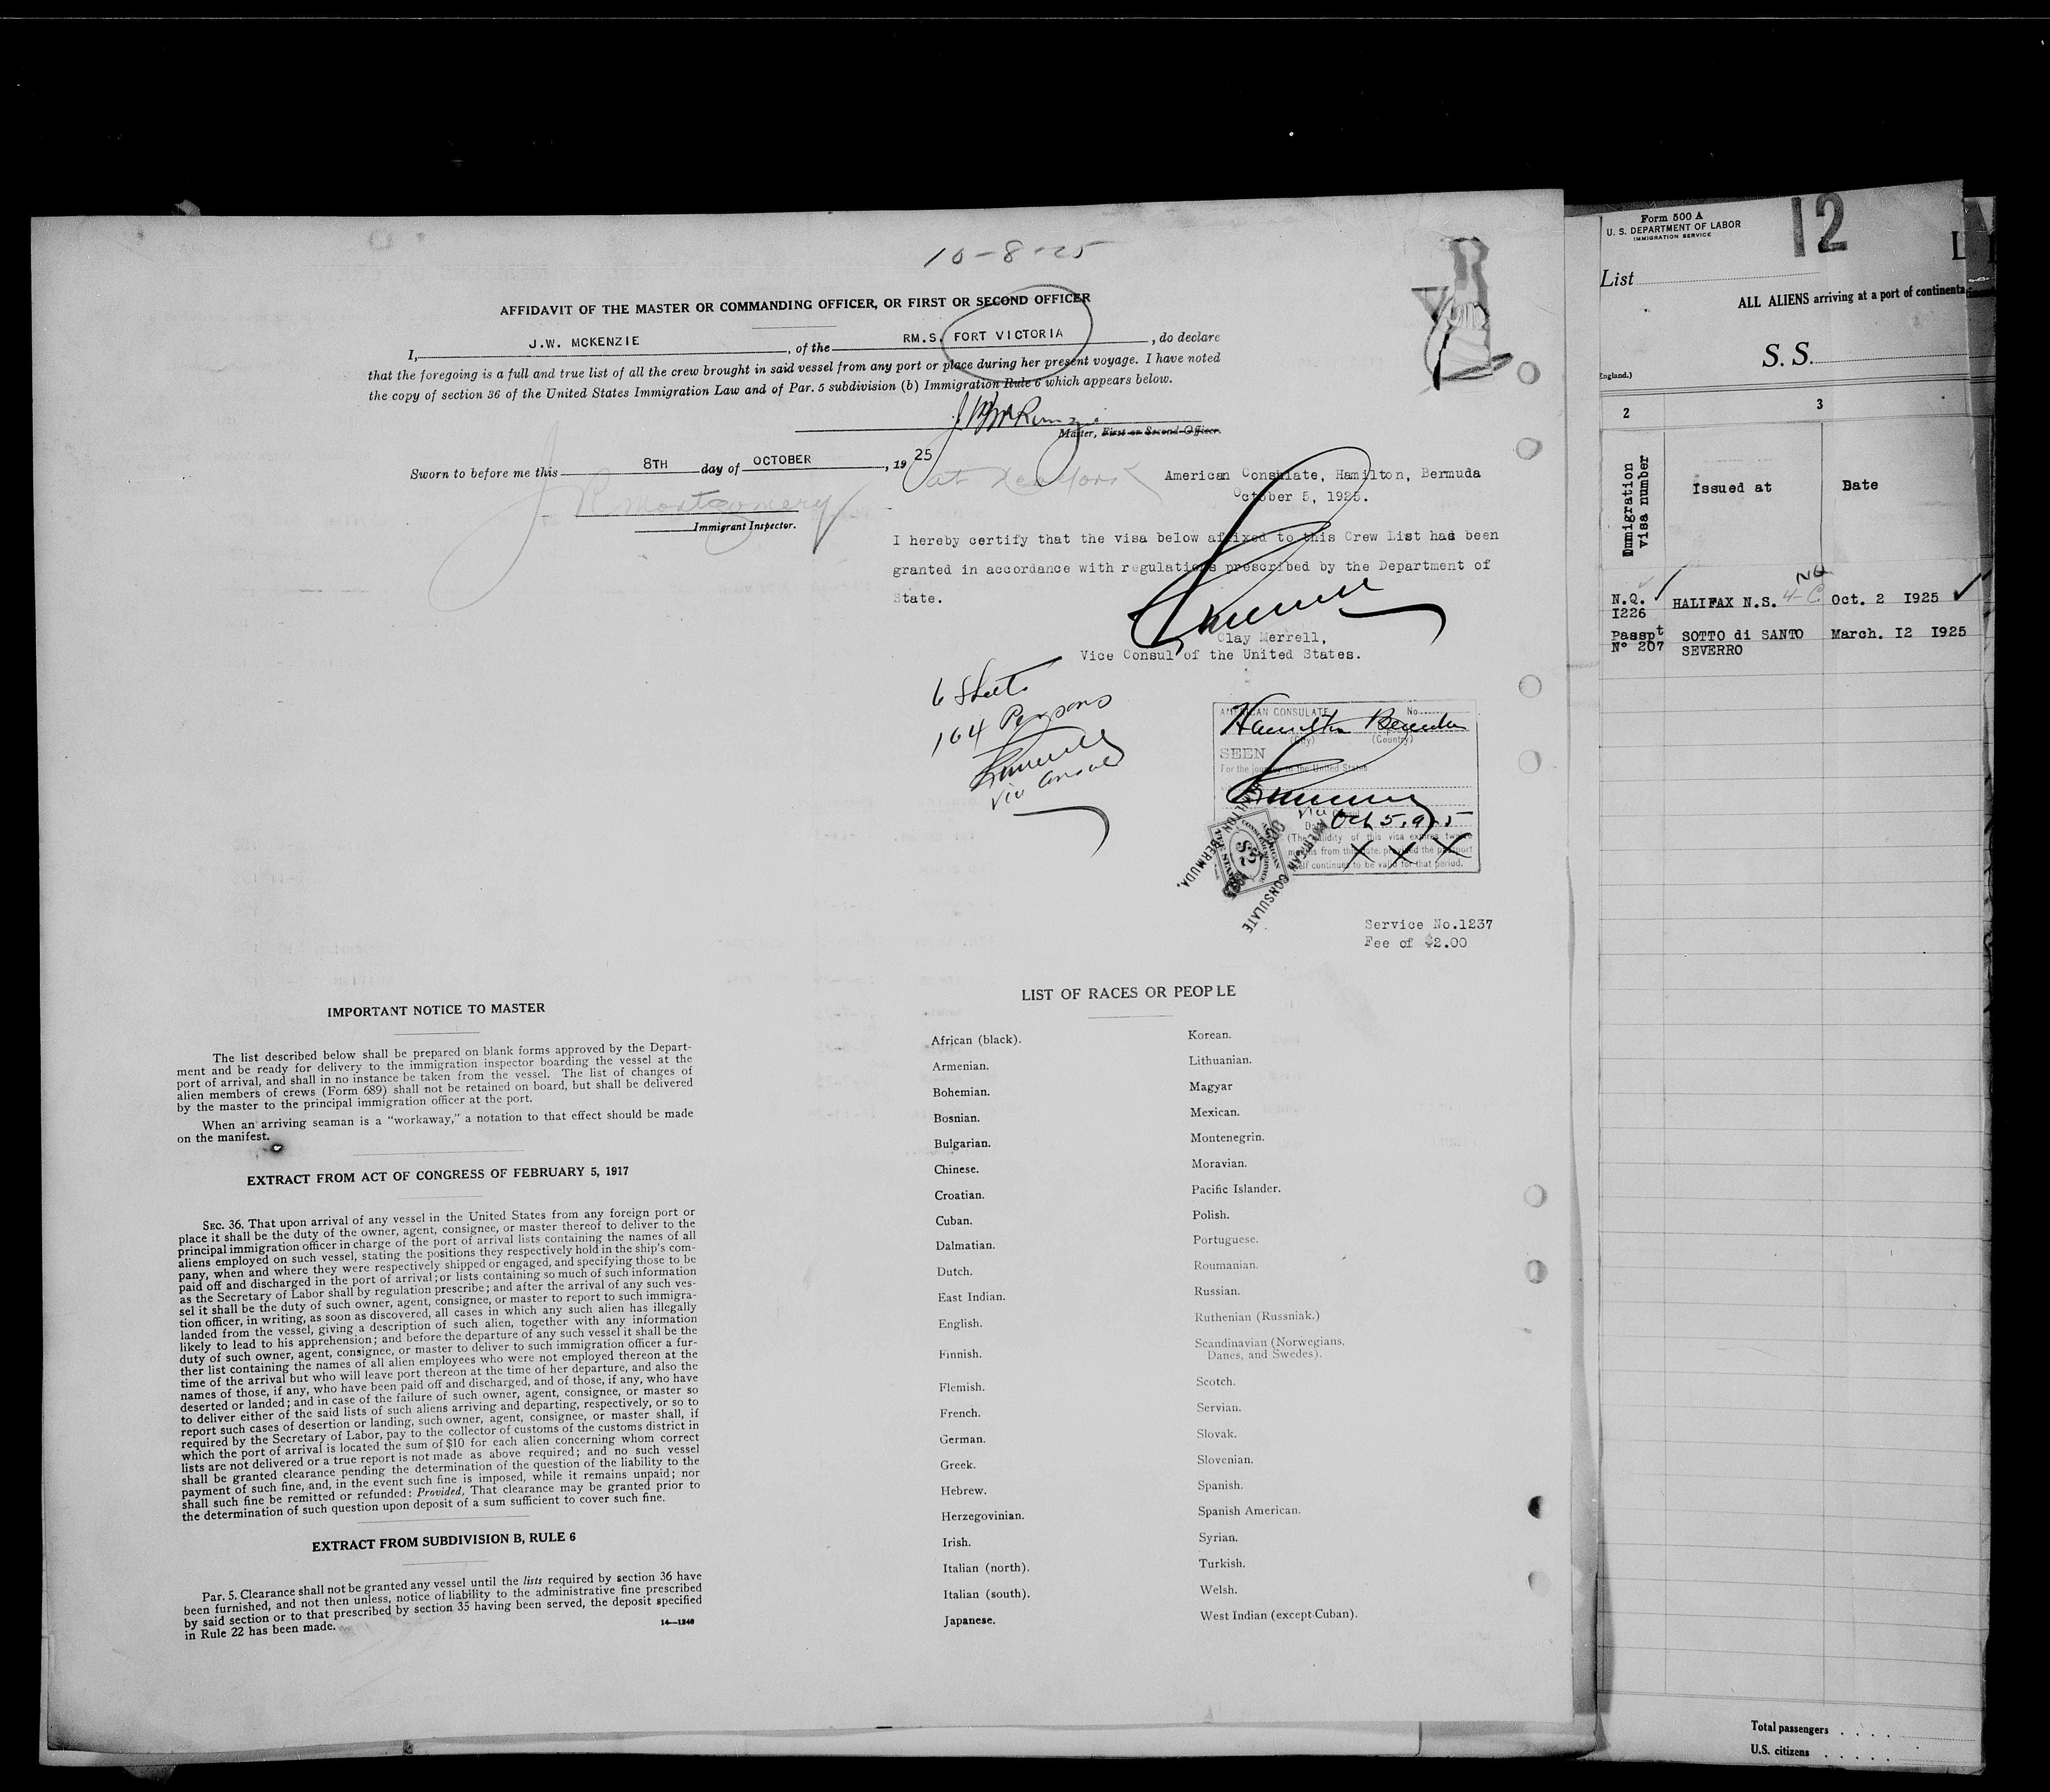 10-8-25
AFFIDAVIT OF THE MASTER OR COMMANDING OFFICER, OR FIRST OR SECOND OFFICER
I, J.W. MCKENZIE, of the RM.S. FORT VICTORIA, do declare
that the foregoing is a full and true list of all the crew brought in said vessel from any port or place during her present voyage. I have noted
the copy of section 36 of the United States Immigration Law and of Par. 5 subdivision (b) Immigration Rule 6 which appears below.
J W McKenzie
Master, First or Second Officer.
Sworn to before me this 8TH day of OCTOBER, 1925
at
J R Montgomery
Immigrant Inspector.
American Consulate, Hamilton, Bermuda
October 5, 1925.
I hereby certify that the visa below affixed to this Crew List has been
granted in accordance with regulations prescribed by the Department of
State.
Clay Merrell,
Vice Consul of the United States.
6 Sheets
164 Persons
Vice Consul
AMERICAN CONSULATE No.
Hamilton Bermuda
(City) (Country)
SEEN
For the journey to the United States
Oct 5, 1925
(The validity of this visa expires twelve
months from this date, provided the passport
itself continues to be valid for that period.
X X X
AMERICAN CONSULATE
HAMILTON BERMUDA.
Service No.1237
Fee of $2.00
IMPORTANT NOTICE TO MASTER
The list described below shall be prepared on blank forms approved by the Depart-
ment and be ready for delivery to the immigration inspector boarding the vessel at the
port of arrival, and shall in no instance be taken from the vessel. The list of changes of
alien members of crews (Form 689) shall not be retained on board, but shall be delivered
by the master to the principal immigration officer at the port.
When an arriving seaman is a "workaway," a notation to that effect should be made
on the manifest.
EXTRACT FROM ACT OF CONGRESS OF FEBRUARY 5, 1917
SEC. 36. That upon arrival of any vessel in the United States from any foreign port or
place it shall be the duty of the owner, agent, consignee, or master thereof to deliver to the
principal immigration officer in charge of the port of arrival lists containing the names of all
aliens employed on such vessel, stating the positions they respectively hold in the ship's com-
pany, when and where they were respectively shipped or engaged, and specifying those to be
paid off and discharged in the port of arrival; or lists containing so much of such information
as the Secretary of Labor shall by regulation prescribe; and after the arrival of any such ves-
sel it shall be the duty of such owner, agent, consignee, or master to report to such immigra-
tion officer, in writing, as soon as discovered, all cases in which any such alien has illegally
landed from the vessel, giving a description of such alien, together with any information
likely to lead to his apprehension; and before the departure of any such vessel it shall be the
duty of such owner, agent, consignee, or master to deliver to such immigration officer a fur-
ther list containing the names of all alien employees who were not employed thereon at the
time of the arrival but who will leave port thereon at the time of her departure, and also the
names of those, if any, who have been paid off and discharged, and of those, if any, who have
deserted or landed; and in case of the failure of such owner, agent, consignee, or master so
to deliver either of the said lists of such aliens arriving and departing, respectively, or so to
report such cases of desertion or landing, such owner, agent, consignee, or master shall, if
required by the Secretary of Labor, pay to the collector of customs of the customs district in
which the port of arrival is located the sum of $10 for each alien concerning whom correct
lists are not delivered or a true report is not made as above required; and no such vessel
shall be granted clearance pending the determination of the question of the liability to the
payment of such fine, and, in the event such fine is imposed, while it remains unpaid; nor
shall such fine be remitted or refunded: Provided, That clearance may be granted prior to
the determination of such question upon deposit of a sum sufficient to cover such fine.
EXTRACT FROM SUBDIVISION B, RULE 6
Par. 5. Clearance shall not be granted any vessel until the lists required by section 36 have
been furnished, and not then unless, notice of liability to the administrative fine prescribed
by said section or to that prescribed by section 35 having been served, the deposit specified
in Rule 22 has been made.
14—1240
LIST OF RACES OR PEOPLE
African (black).
Armenian.
Bohemian.
Bosnian.
Bulgarian.
Chinese.
Croatian.
Cuban.
Dalmatian.
Dutch.
East Indian.
English.
Finnish.
Flemish.
French.
German.
Greek.
Hebrew.
Herzegovinian.
Irish.
Italian (north).
Italian (south).
Japanese.
Korean.
Lithuanian.
Magyar
Mexican.
Montenegrin.
Moravian.
Pacific Islander.
Polish.
Portuguese.
Roumanian.
Russian.
Ruthenian (Russniak.)
Scandinavian (Norwegians,
Danes, and Swedes).
Scotch.
Servian.
Slovak.
Slovenian.
Spanish.
Spanish American.
Syrian.
Turkish.
Welsh.
West Indian (except Cuban).
Form 500 A
U. S. DEPARTMENT OF LABOR
IMMIGRATION SERVICE
12
List
ALL ALIENS arriving at a port of continenta
S. S.
England.)
2 3
Immigration
visa number
Issued at Date
N.Q.
1226 HALIFAX N.S. 4-C NQ Oct. 2 1925
Passpt
Nº 207 SOTTO di SANTO
SEVERRO March. 12 1925
Total passengers . . . .
U.S. citizens . . . . .